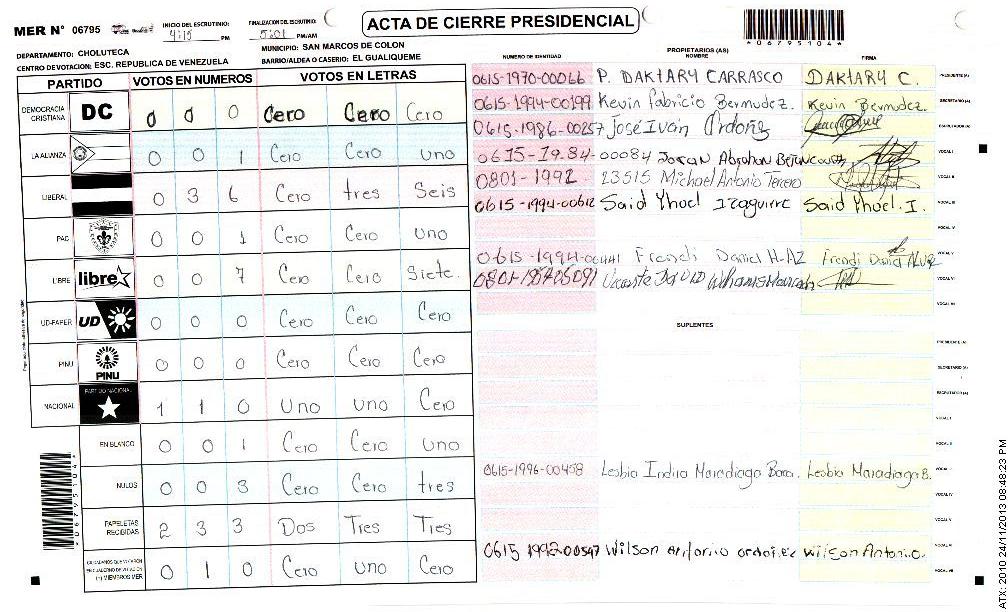 MER N° 06795
INICIO DEL ESCRUTINIO:
4:15 PM
FINALIZACION DEL ESCRUTINIO:
5:01 PM/AM
ACTA DE CIERRE PRESIDENCIAL
*06795104*
DEPARTAMENTO: CHOLUTECA
MUNICIPIO: SAN MARCOS DE COLON
CENTRO DE VOTACION: ESC. REPUBLICA DE VENEZUELA
BARRIO/ALDEA O CASERIO: EL GUALIQUEME
PARTIDO VOTOS EN NUMEROS VOTOS EN LETRAS
DEMOCRACIA CRISTIANA DC 0 0 0 Cero Cero Cero
LA ALIANZA 0 0 1 Cero Cero uno
LIBERAL 0 3 6 Cero tres Seis
PAC 0 0 1 Cero Cero uno
LIBRE libre 0 0 7 Cero Cero Siete.
UD-FAPER UD 0 0 0 Cero Cero Cero
PINU PINU 0 0 0 Cero Cero Cero
NACIONAL PARTIDO NACIONAL 1 1 0 uno uno Cero
EN BLANCO 0 0 1 Cero Cero uno
NULOS 0 0 3 Cero Cero tres
PAPELETAS RECIBIDAS 2 3 3 Dos Tres Tres
CIUDADANOS QUE VOTARON EN CUADERNO DE VOTACION (+) MIEMBROS MER 0 1 0 Cero uno Cero
*06795104*
PROPIETARIOS (AS)
NUMERO DE IDENTIDAD NOMBRE FIRMA
0615-1970-00066 P. DAKTARY CARRASCO DAKTARY C. PRESIDENTE (A)
0615-1994-00199 Kevin Fabricio Bermudez. Kevin Bermudez. SECRETARIO (A)
0615-1986-00257 José Iván Ordoñez ESCRUTADOR (A)
0615-1984-00084 Abrahan VOCAL I
0801-1992 23515 Michael Antonio Tercero VOCAL II
0615-1994-00612 Said Yhoel Izaguirre Said Yhoel. I. VOCAL III
VOCAL IV
0615-1994- Frendi Daniel Frendi VOCAL V
VOCAL VI
VOCAL VII
SUPLENTES
PRESIDENTE (A)
SECRETARIO (A)
ESCRUTADOR (A)
VOCAL I
VOCAL II
0615-1996-00458 Lesbia Indira Maradiaga Lesbia Maradiaga B. VOCAL III
VOCAL IV
VOCAL V
0615 1992-00547 Wilson Antonio Wilson Antonio.O. VOCAL VI
VOCAL VII
ATX: 2010 24/11/2013 08:48:23 PM